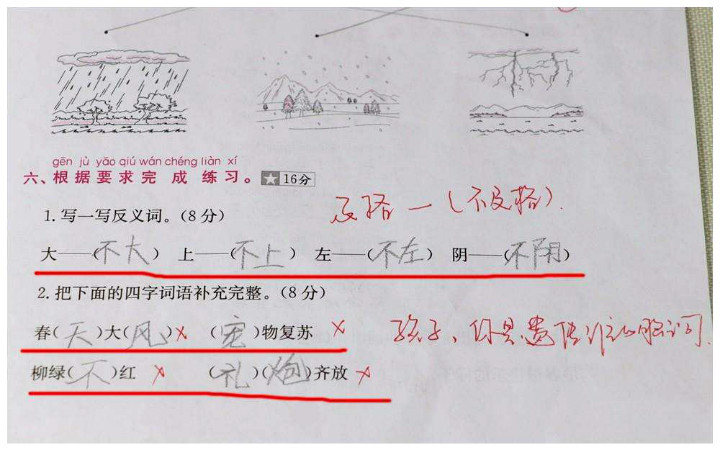 gēn jù yāo qiú wán chéng liàn xí
六、根据要求完成练习。★16分
1.写一写反义词。(8分)
及格一(不及格).
大——(不大) 上——(不上) 左——(不左) 阴——(不阴)
2.把下面的四字词语补充完整。(8分)
春(天)大(风)× (宠)物复苏 ×
孩子、你是遗传谁的脑洞
柳绿(不)红 × (礼)(炮)齐放 ×